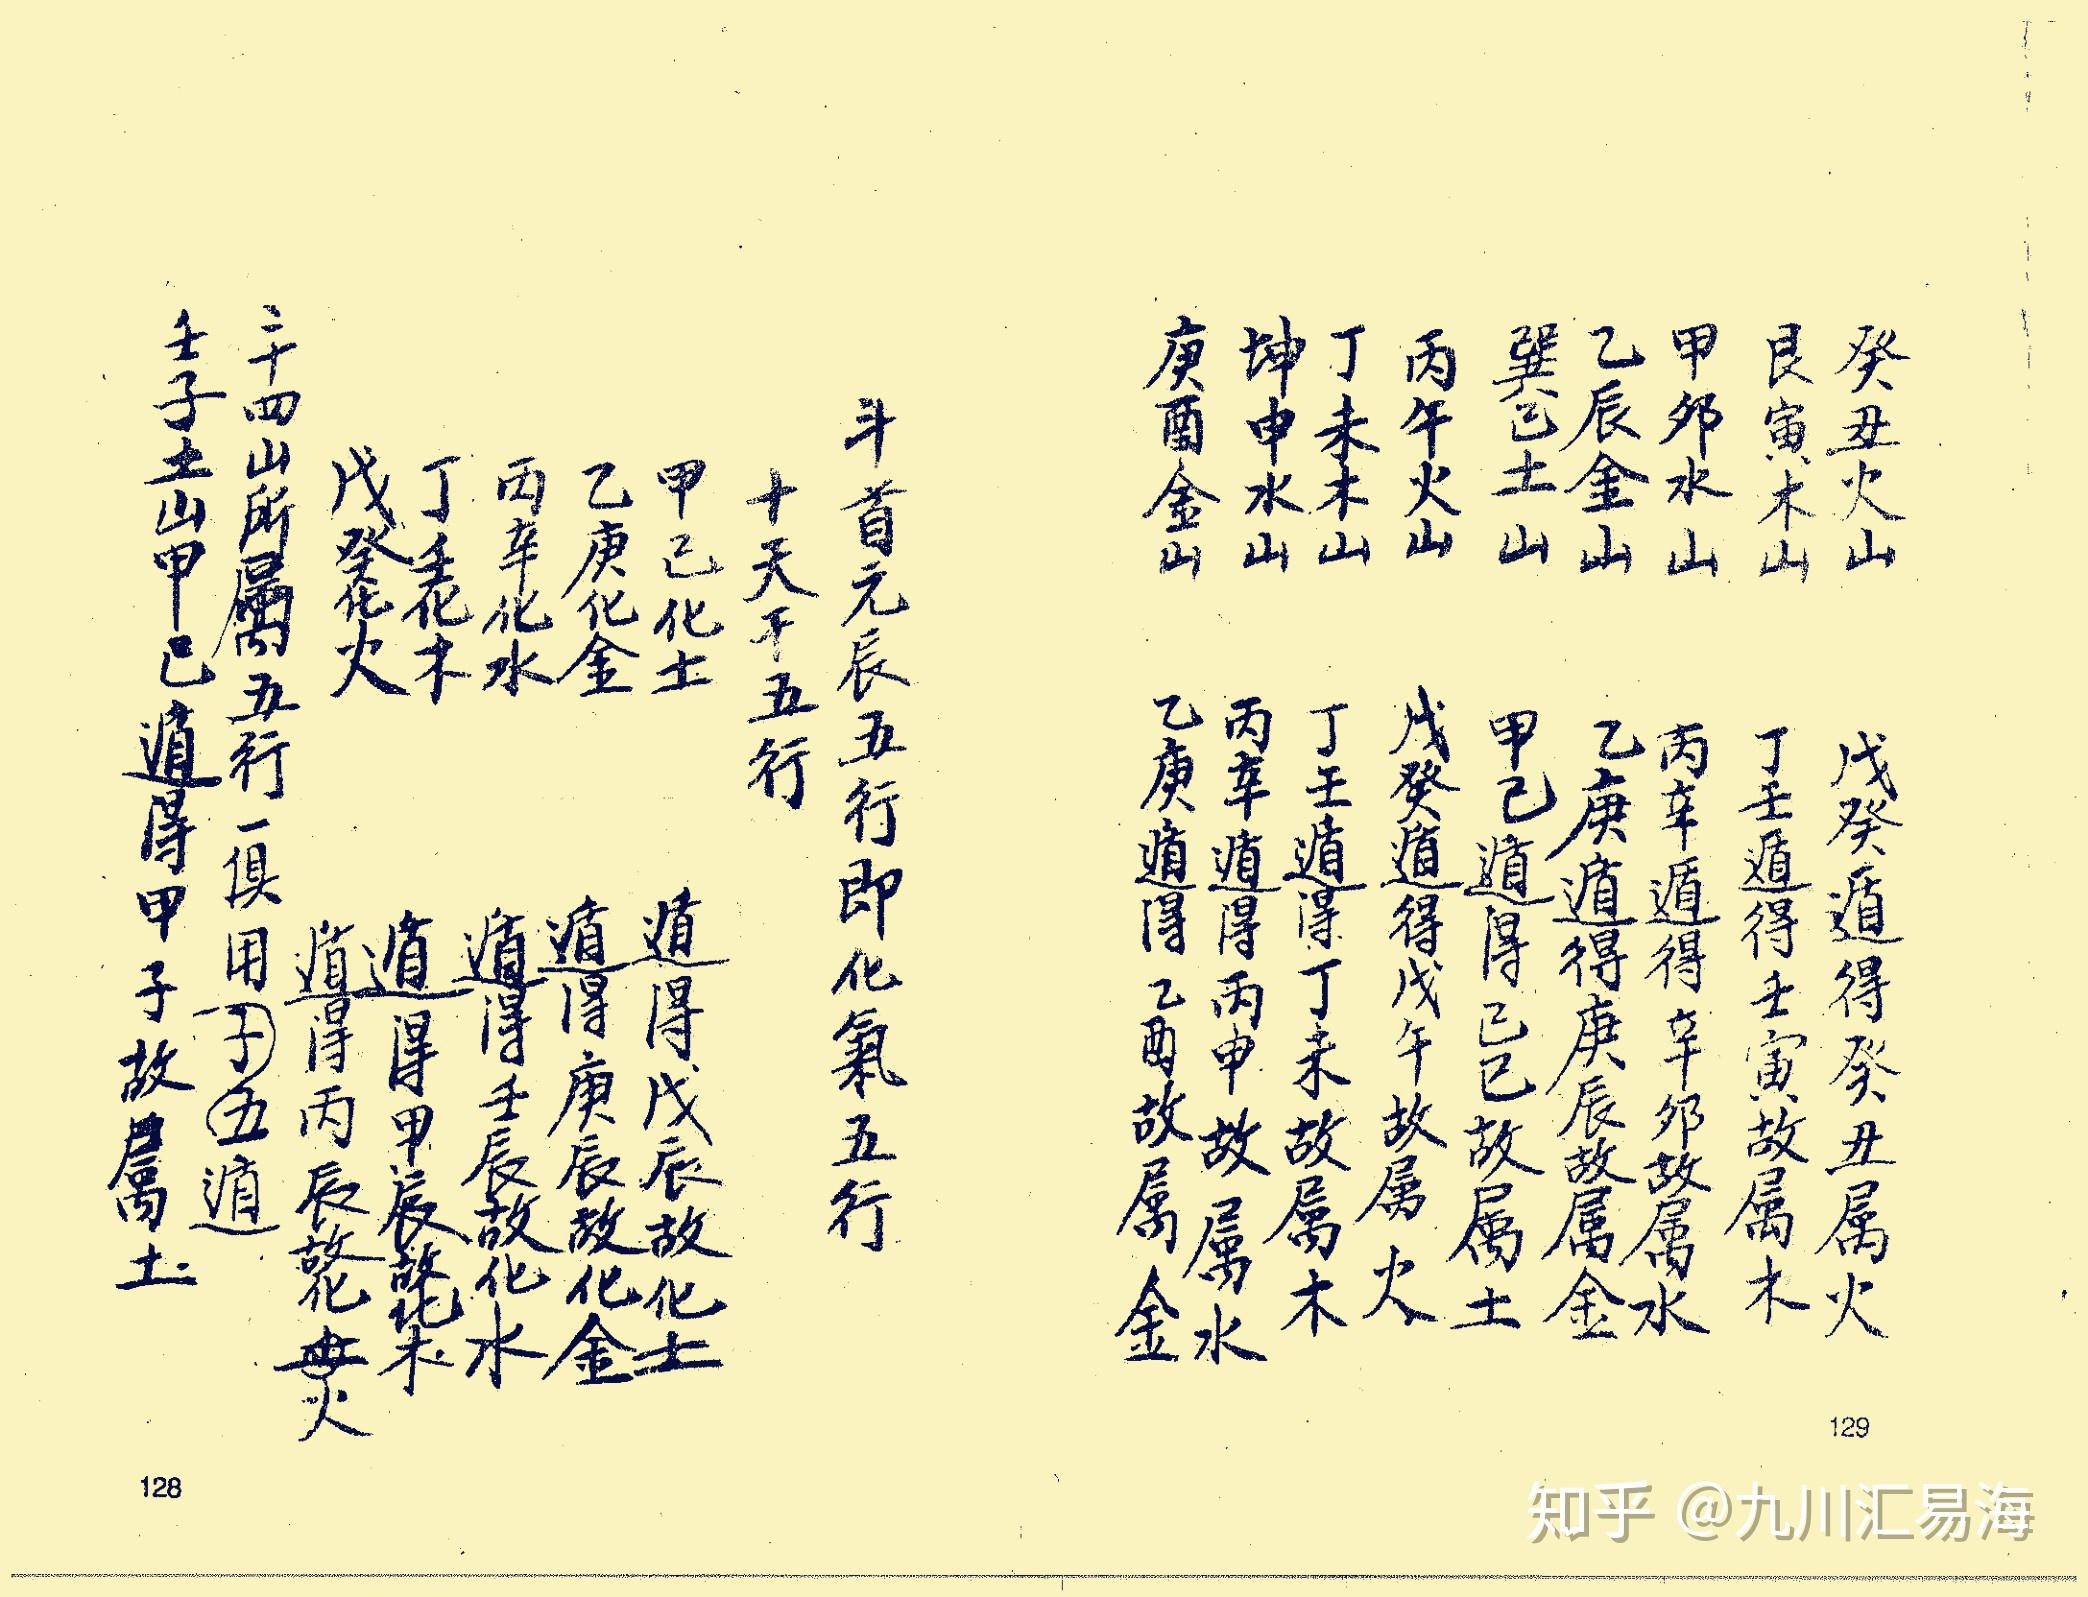 斗首元辰五行即化氣五行
十天干五行
甲己化土 遁得戊辰故化土
乙庚化金 遁得庚辰故化金
丙辛化水 遁得壬辰故化水
丁壬化木 遁得甲辰故化木
戊癸化火 遁得丙辰故化火
二十四山所屬五行一俱用子五遁
壬子土山甲己遁得甲子故属土
128
癸丑火山 戊癸遁得癸丑属火
艮寅木山 丁壬遁得壬寅故属木
甲卯水山 丙辛遁得辛卯故属水
乙辰金山 乙庚遁得庚辰故属金
巽巳土山 甲己遁得己巳故属土
丙午火山 戊癸遁得戊午故属火
丁未木山 丁壬遁得丁未故属木
坤申水山 丙辛遁得丙申故属水
庚酉金山 乙庚遁得乙酉故属金
129
知乎 @九川汇易海